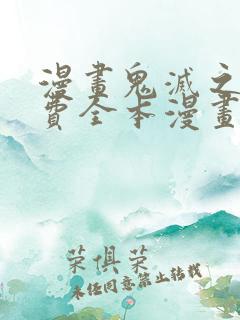 漫畫鬼滅之
費全本漫畫
荣俱荣
未经同意禁止转载